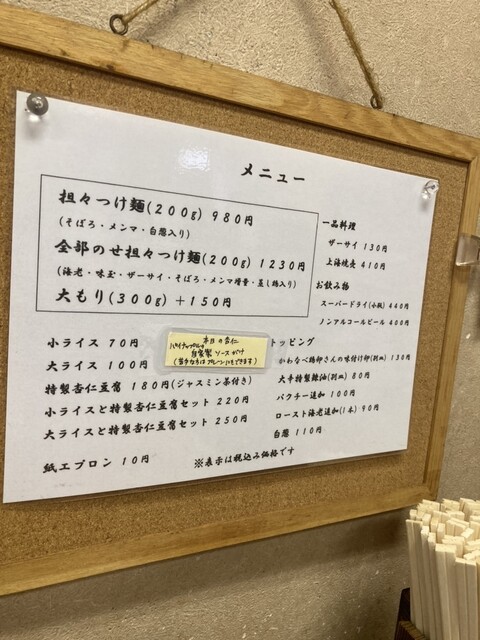 メニュー
担々つけ麺(200g) 980円
(そぼろ・メンマ・白葱入り)
全部のせ担々つけ麺(200g) 1230円
(海老・味玉・ザーサイ・そぼろ・メンマ増量・蒸し鶏入り)
大もり(300g) +150円
小ライス 70円
大ライス 100円
特製杏仁豆腐 180円(ジャスミン茶付き)
小ライスと特製杏仁豆腐セット 220円
大ライスと特製杏仁豆腐セット 250円
紙エプロン 10円
本日の杏仁
自家製 ソースがけ
一品料理
ザーサイ 130円
上海焼売 410円
お飲み物
スーパードライ(小瓶) 440円
ノンアルコールビール 400円
トッピング
かわなべ鶏卵さんの味付け卵(別皿) 130円
大辛特製辣油(別皿) 80円
パクチー追加 100円
ロースト海老追加(1本) 90円
白葱 110円
※表示は税込み価格です